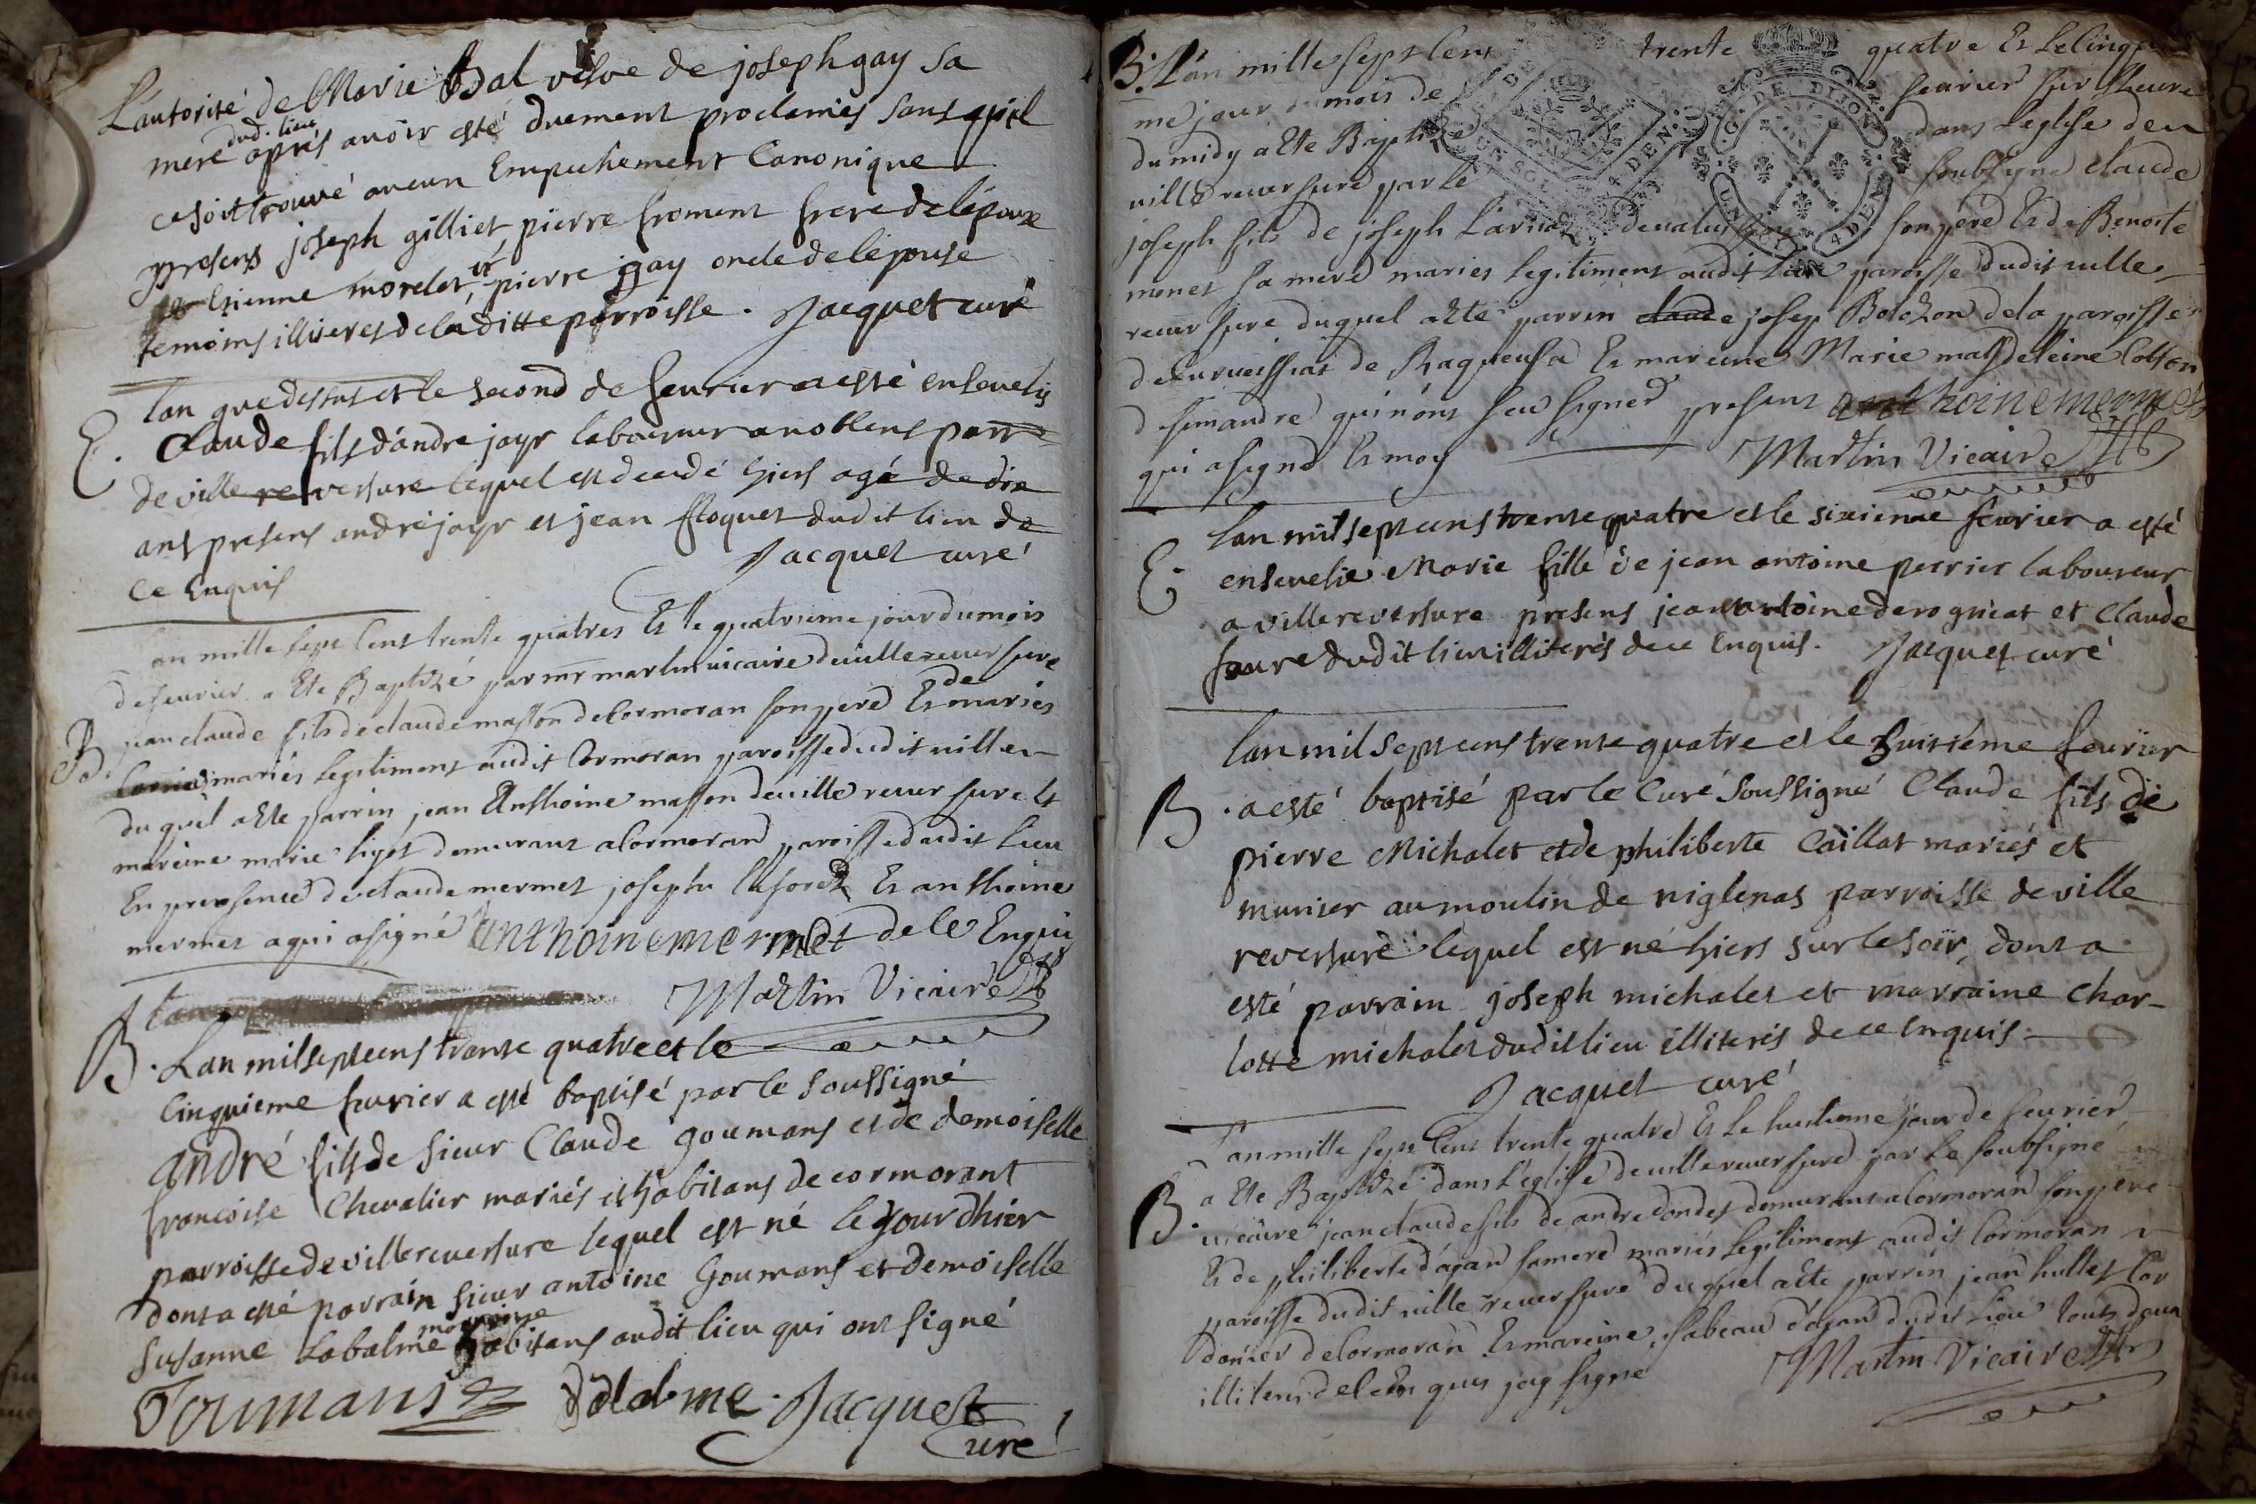 L'autorité de Marie Bal vesve de joseph gay sa
mere dud. lieu après avoir esté duement proclamés sans qu'il
ce soit trouvé aucun Empechement Canonique
presens joseph gilliet pierre froment frere de lépoux
Etienne morelet, et pierre gay oncle de lépouse
temoins illiteres de laditte parroisse. Jacquet curé
E. lan que dessus et le second de feurier a esté enseueli
Claude fils d'andré jayr laboureur a noblens parr
de ville reversure lequel est decedé hiers agé de dix
ans presens andré jayr et jean floquet dudit lieu de
ce Enquis Jacquet curé
B. Lan mille sept Cent trente quatres Et le quatrieme jour du mois
de feurier a Ete Baptizé par mr martin vicaire de uille reuersure
jean claude fils de claude masson de Cormoran son pere Et de
mariés legitiment audit Cormoran paroisse dudit uille
du quel a Ete parrin jean Anthoine masson de uille reuersure Et
mareine marie ligot demurant a Cormoran paroisse dudit lieu
En presence de claude mermet joseph Et anthoine
mermet a qui a signé anthoine mermet de ce Enquis
Martin Vicaire
B. Lan mil sept cens trente quatre et le
Cinquieme feurier a esté baptisé par le soussigné
andré fils de sieur Claude goumans et de demoiselle
francoise Chevalier mariés et habitans de cormorant
parroisse de ville reversure lequel est né le jour dhier
dont a esté parrain sieur antoine Goumans et demoiselle
Susanne Labalme marraine habitans audit lieu qui ont signé
Goumans Jacquet
curé
B. Lan mille sept Cent trente quatre Et le cinqu
me jour du mois de feurier sur lheure
du midy a Ete Baptizé dans Leglise de
uille reuersure par le soubsigné claude
joseph fils de joseph son pere Et de Benoite
monet sa mere mariés legitiment audit lieu paroisse dudit uille
reuersure duquel a Ete parrin claude josep Bolozon de la paroisse
de Et mareine Marie masdeleine
de simandre qui nont seu signer present anthoine mermet
qui a signé Et moy Martin Vicaire
E. Lan mil sept cens trente quatre et le sixieme feurier a esté
enseuelie Marie fille de jean antoine perrier laboureur
a ville reversure presens jean antoine derognat et Claude
faure dudit lieu illiterés de ce Enquis. Jacquet curé
B. Lan mil sept cens trente quatre et le huitiéme feurier
a esté baptisé par le Curé Soussigné Claude fils de
pierre Michalet et de philiberte Caillat mariés et
munier au moulin de niglenas parroisse de ville
reversure lequel est né hiers sur le soir, dont a
esté parrain joseph michalet et marraine Char-
lotte michalet dudit lieu illiterés de ce enquis
Jacquet curé
B. Lan mille sept Cent trente quatre Et le huitieme jour de feurier
a Ete Baptizé dans L'église de uille reuersure par le soubsigné
uicaire jean claude fils de andre dondet demurant a Cormoran son pere
Et de philiberte d'agan sa mere mariés legitiment audit Cormoran
paroisse dudit uille reuersure duquel a Ete parrin jean hullet Cor
donier de Cormoran Et mareine isabeau d'agan dudit lieu touts deux
illiterés de ce Enquis jay signé Martin Vicaire